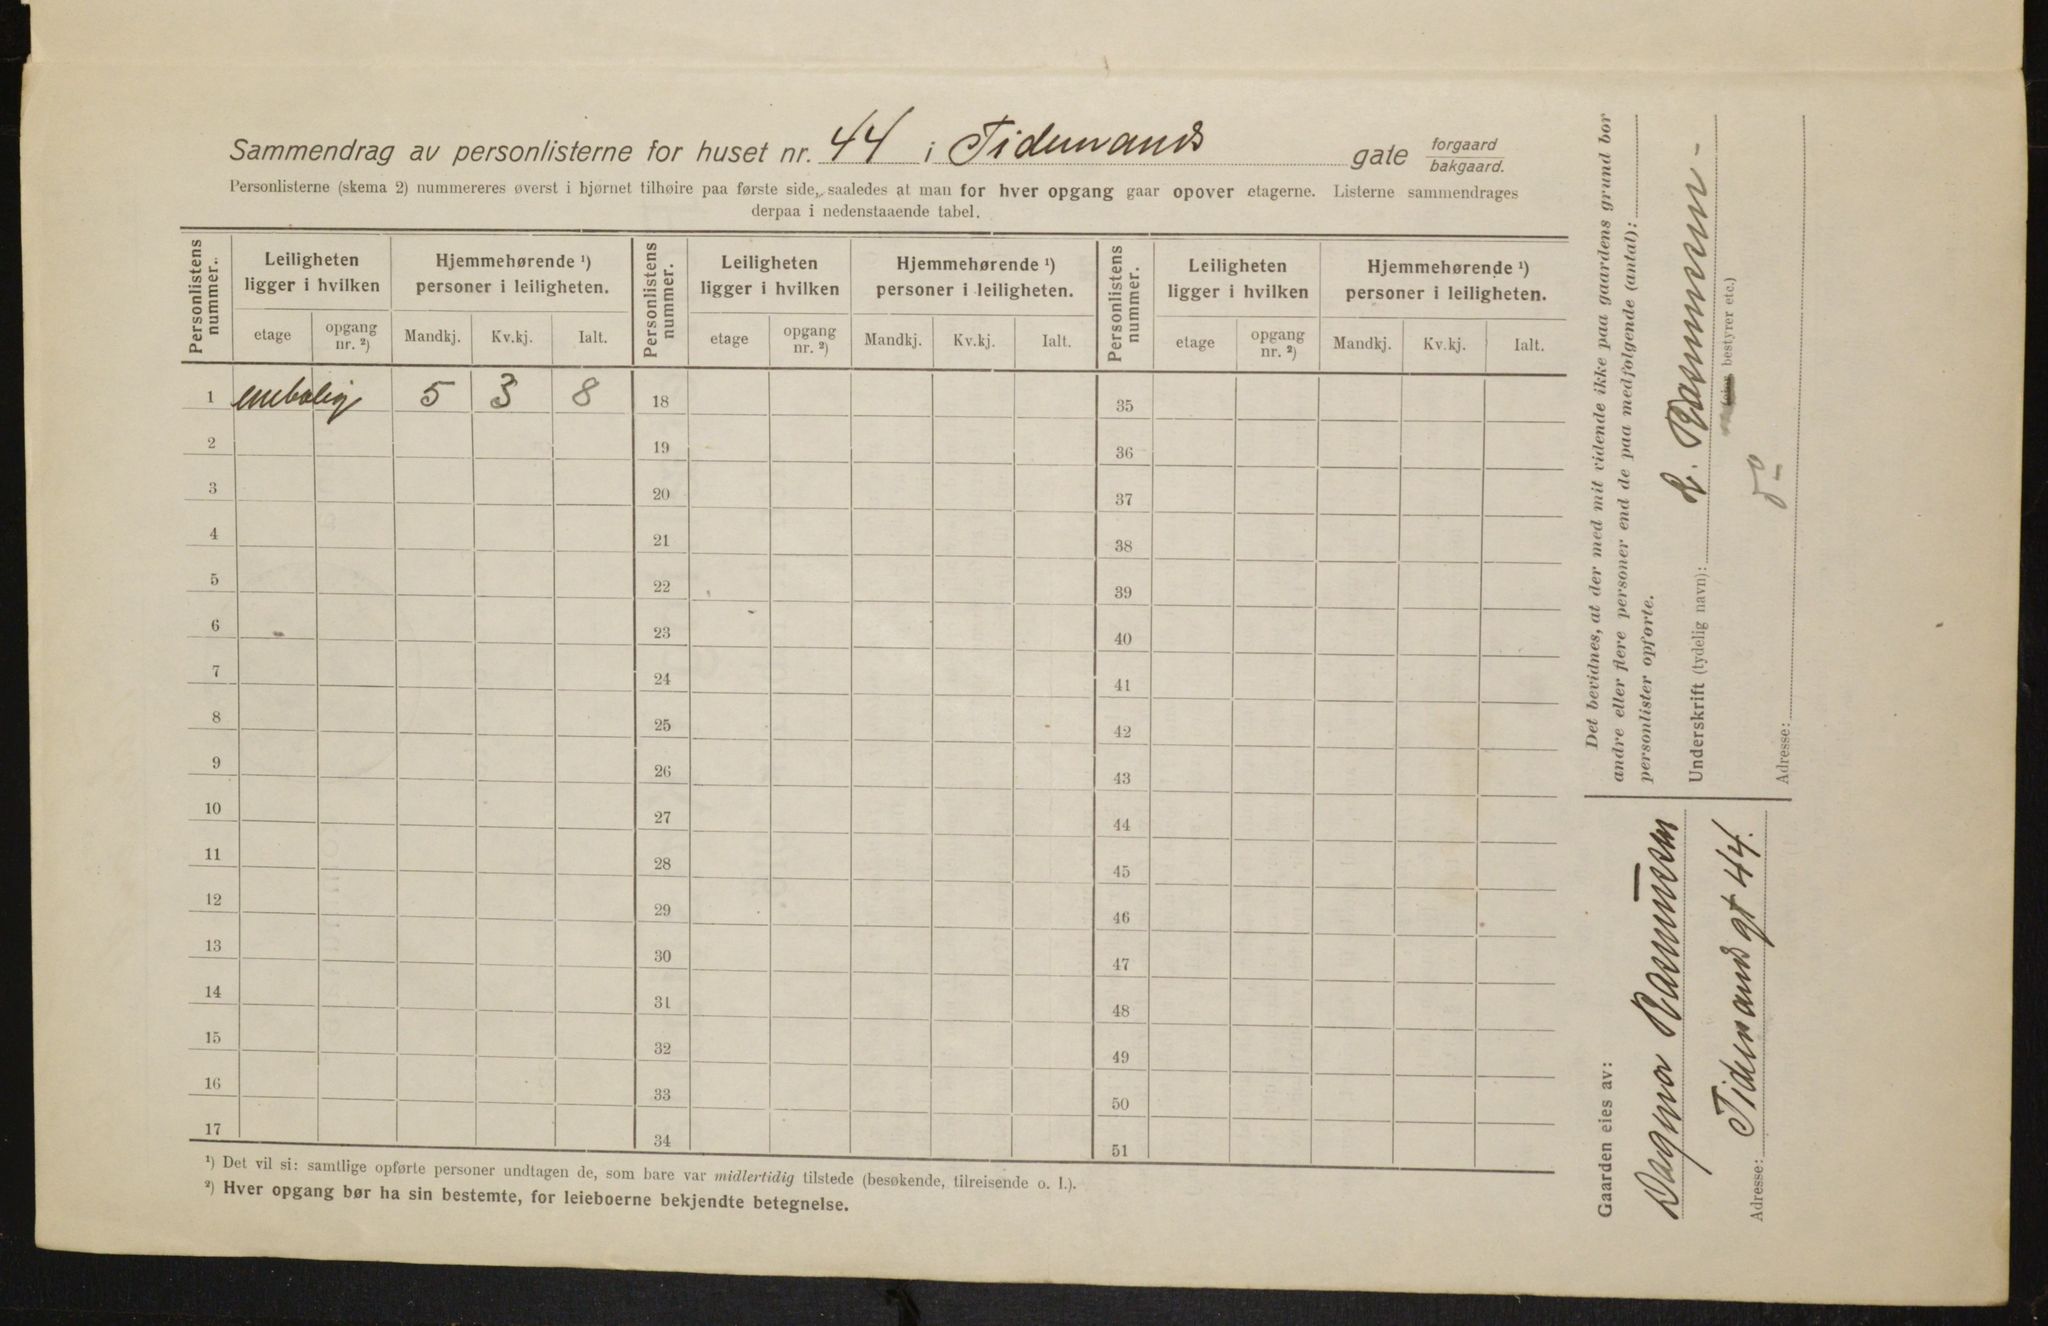 Sammendrag av personlisterne for huset nr. 44 i Tidemands gate forgaard
bakgaard.
Personlisterne (skema 2) nummereres øverst i hjørnet tilhøire paa første side, saaledes at man for hver opgang gaar opover etagerne. Listerne sammendrages
derpaa i nedenstaaende tabel.
Personlistens nummer. Leiligheten ligger i hvilken Hjemmehørende ¹) personer i leiligheten. Personlistens nummer. Leiligheten ligger i hvilken Hjemmehørende ¹) personer i leiligheten. Personlistens nummer. Leiligheten ligger i hvilken Hjemmehørende ¹) personer i leiligheten.
etage opgang nr. ²) Mandkj. Kv.kj. Ialt. etage opgang nr. ²) Mandkj. Kv.kj. Ialt. etage opgang nr. ²) Mandkj. Kv.kj. Ialt.
1 enebolig 5 3 8 18 35
2 19 36
3 20 37
4 21 38
5 22 39
6 23 40
7 24 41
8 25 42
9 26 43
10 27 44
11 28 45
12 29 46
13 30 47
14 31 48
15 32 49
16 33 50
17 34 51
¹) Det vil si: samtlige opførte personer undtagen de, som bare var midlertidig tilstede (besøkende, tilreisende o. l.).
²) Hver opgang bør ha sin bestemte, for leieboerne bekjendte betegnelse.
Det bevidnes, at der med mit vidende ikke paa gaardens grund bor
andre eller flere personer end de paa medfølgende (antal):
personlister opførte.
Underskrift (tydelig navn): Rasmussen
bestyrer etc.)
Adresse: do
Gaarden eies av:
Dagna Rasmussen
Adresse: Tidemands gt 44.